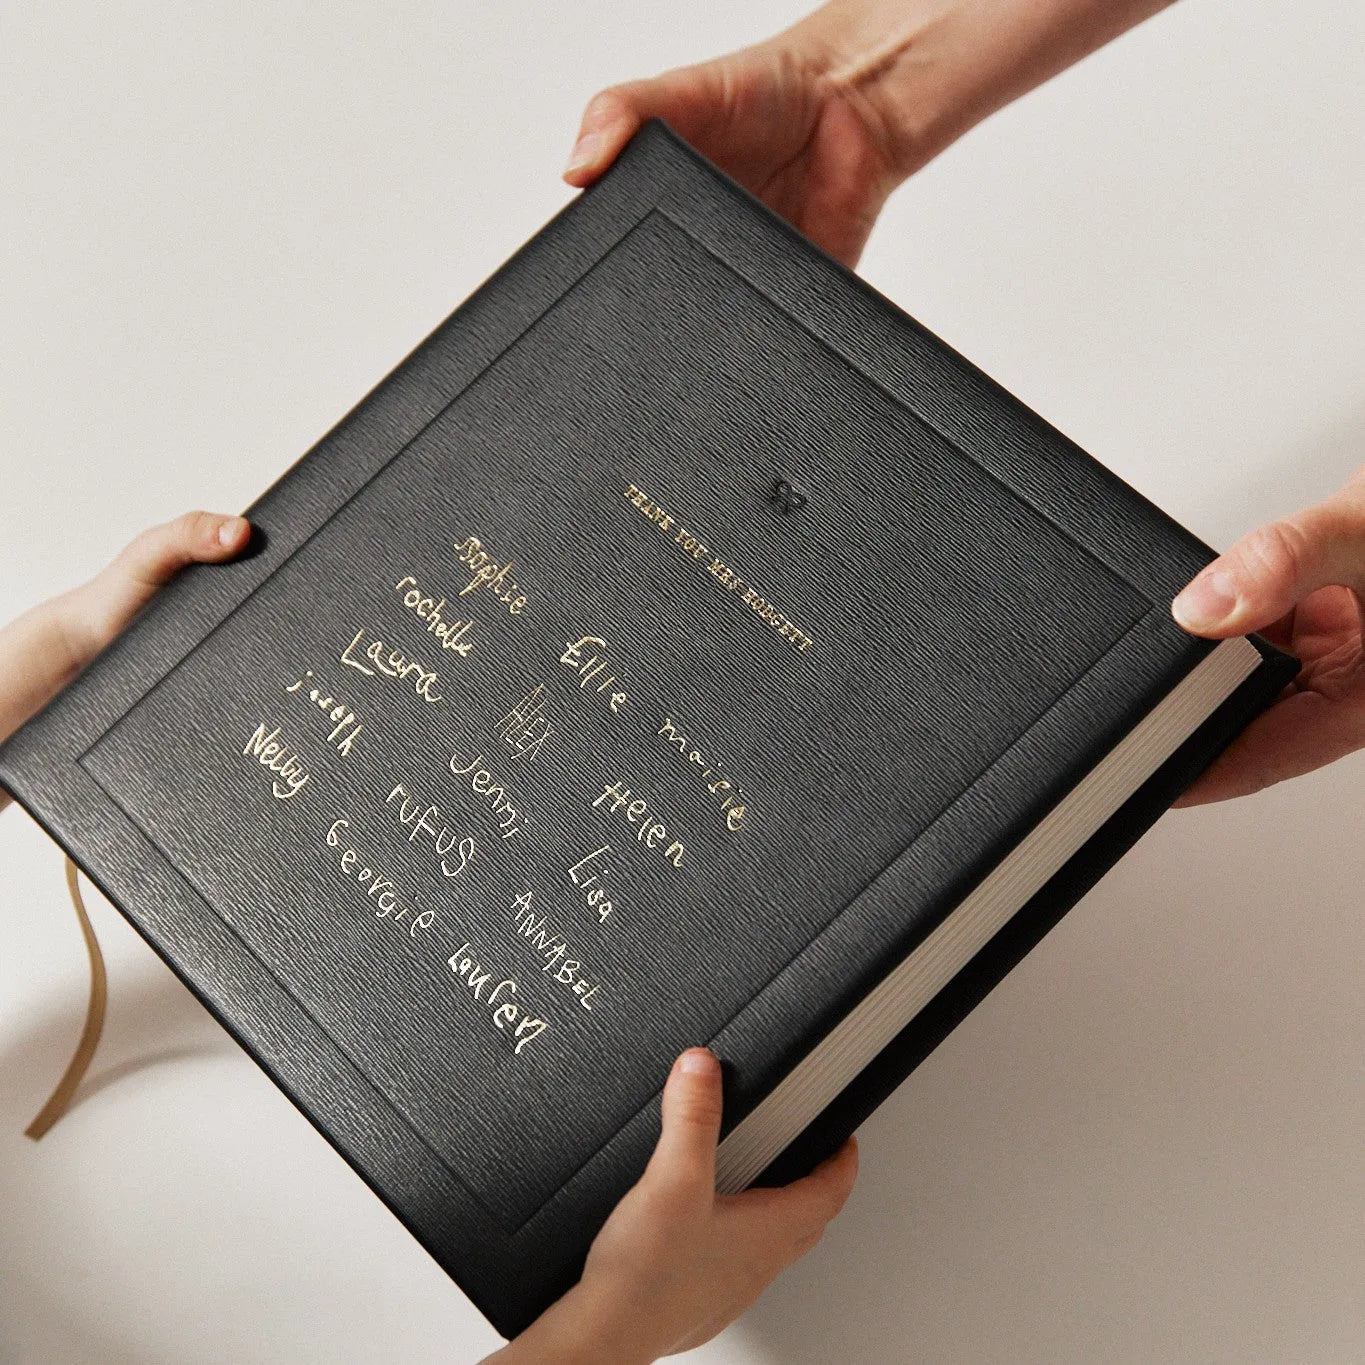 THANK YOU MRS HODGETT
sophie Ellie maisie
rochelle ALEX Helen
Laura Jenni Lisa
joseph rufus ANNABEL
Georgie Lauren